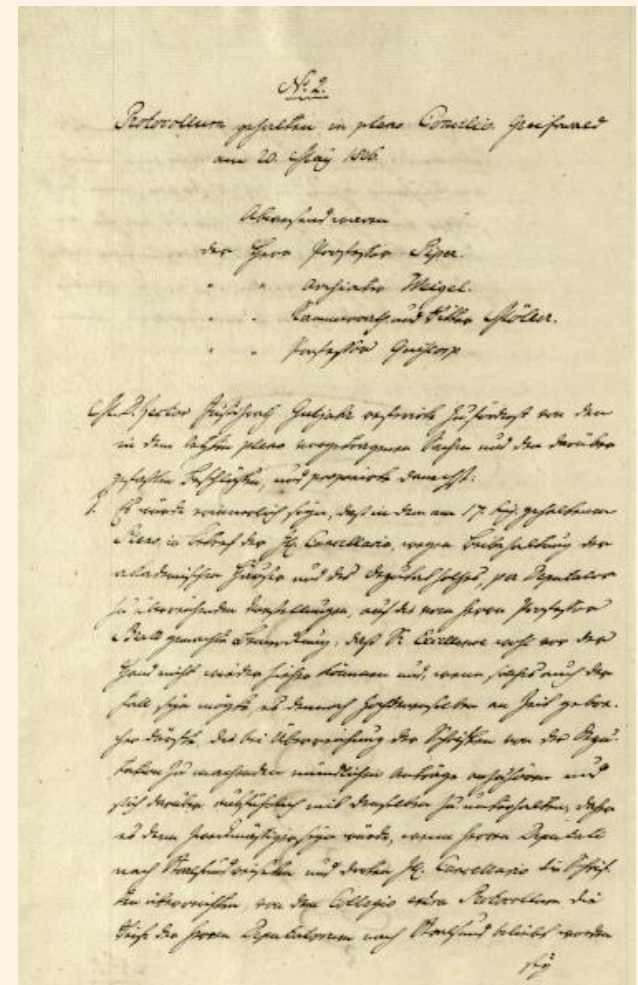 No. 2.
Protocollum gehalten in pleno Concilio. Greifswald
am 20. May 1806.
Abwesend waren
der Herr Professor Piper.
" " Archiater Weigel.
" " Kammerrath und Ritter Möller.
" " Professor Quistorp
Rector Gutjahr referirte zuförderst von den
in dem letzten pleno vorgetragenen Sachen und den darüber
gefaßten Beschlüssen, und proponirte demnächst:
1. Es würde erinnerlich seyn, daß in dem am 17. huj. gehaltenen
Pleno, in Betreff der Cancellario, wegen Beibehaltung der
academischen Häuser und des Deputatholzes, per Deputatos
zu überreichenden Vorstellungen, auf die vom Herrn Professor
gemachte Bemerkung, daß Se Excellence wohl vor der
Hand nicht wieder hieher kommen und, wenn solches auch der
Fall seyn mögte, es dennoch Hochdenselben an Zeit gebre-
chen dürfte, die bei Überreichung der Schriften von der Depu-
tation zu machenden mündlichen Anträge anzuhören und
sich darüber ausführlich mit denselben zu unterhalten, daher
es denn zweckmäßiger seyn würde, wenn Herren Deputati
nach Stralsund reiseten und dorten Cancellario die Schrif-
ten überreichten, von dem Collegio extra Protocollum die
Reise der Herren Deputatorum nach Stralsund beliebt worden
sey